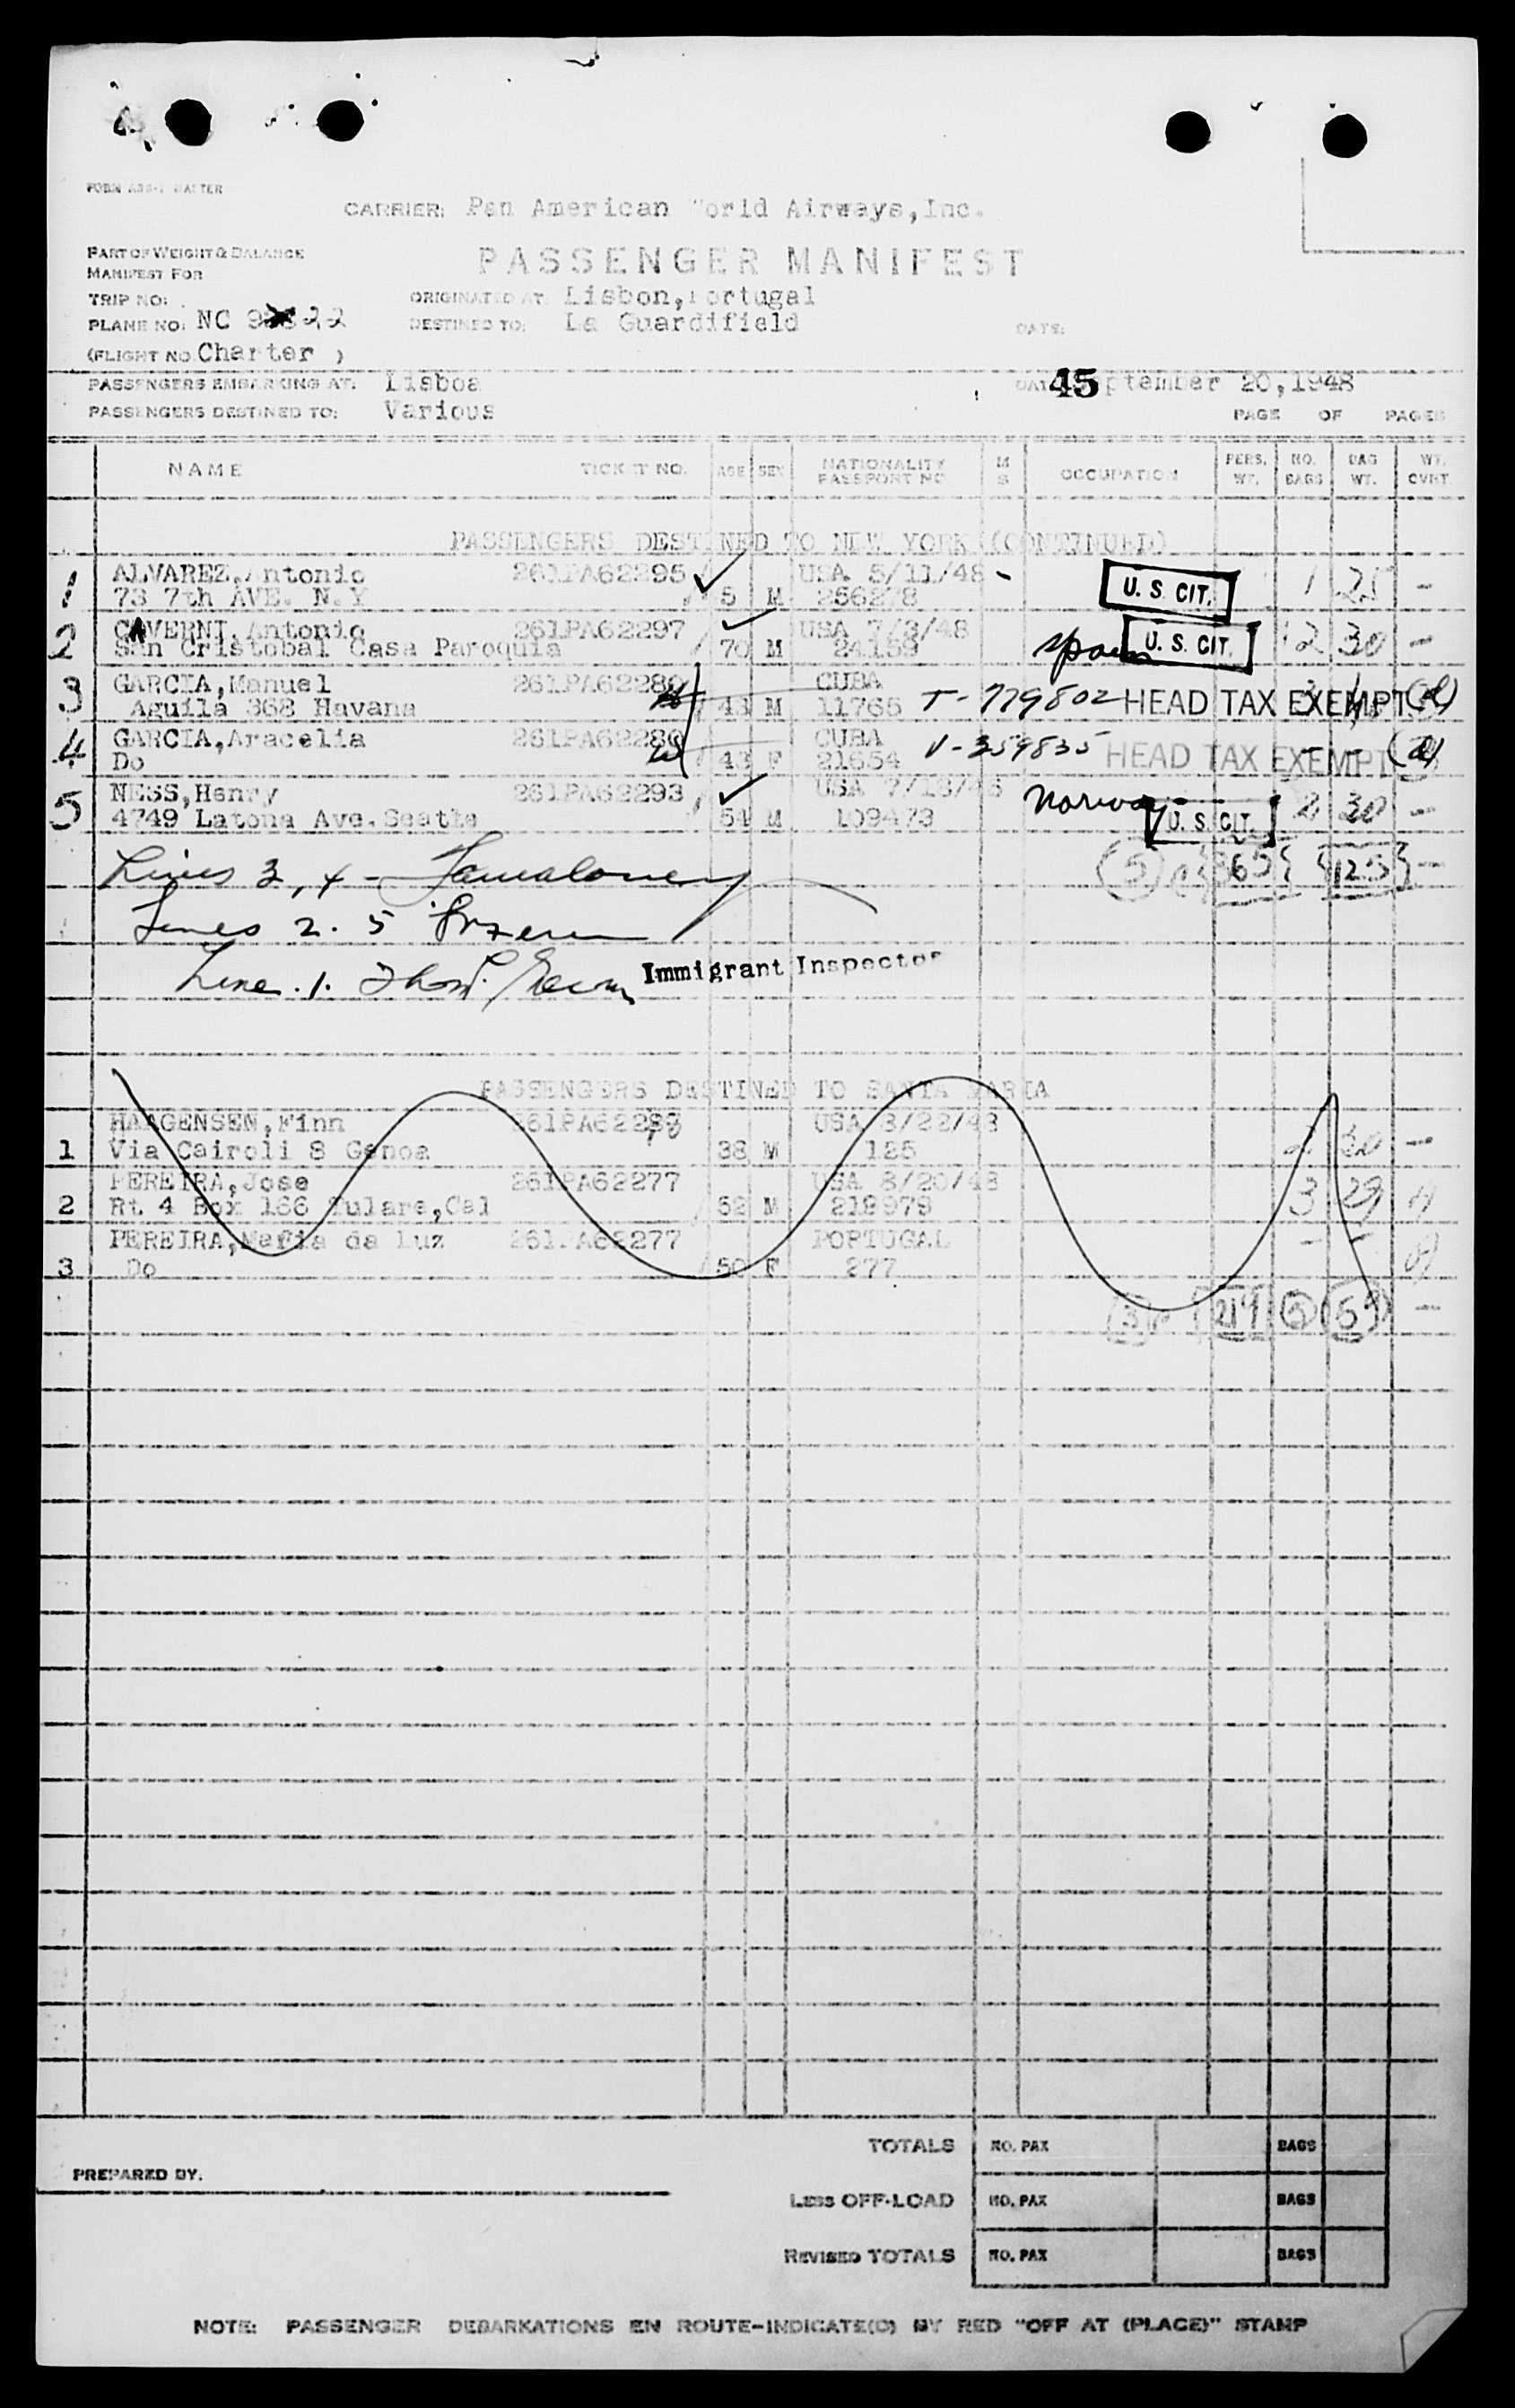 CARRIER: Pan American World Airways, Inc.
PASSENGER MANIFEST
PART OF WEIGHT & BALANCE
MANIFEST FOR
TRIP NO:
ORIGINATED AT: Lisbon, Portugal
PLANE NO: NC 22
DESTINED TO: La Guardifield
DATE:
(FLIGHT NO. Charter )
PASSENGERS EMBARKING AT: Lisboa
45 ptember 20,1948
PASSENGERS DESTINED TO: Various
PAGE OF PAGES
NAME TICKET NO. AGE SEX NATIONALITY PASSPORT NO. M S OCCUPATION PERS. WT. NO. BAGS BAG WT. WT. CVRT.
PASSENGERS DESTINED TO NEW YORK (CONTINUED)
1 ALVAREZ, Antonio 261PA62295 USA 5/11/48 - U. S. CIT. 1 25 -
73 7th AVE. N.Y 5 M 256278
2 CAVERNI, Antonio 261PA62297 USA 7/3/48 U. S. CIT. 2 30 -
San Cristobal Casa Paroquia 70 M 24159 Spain
3 GARCIA, Manuel 261PA62280 CUBA
Aguila 368 Havana 43 M 11765 T-779802 HEAD TAX EXEMPT.
4 GARCIA, Aracelia 261PA62280 CUBA
Do 43 F 21654 V-359835 HEAD TAX EXEMPT
5 NESS, Henry 261PA62293 Norway 2 30 -
4749 Latona Ave. Seatle 54 M 109473 U. S. CIT.
(5) 125 -
Lines 3, 4 -
Lines 2. 5
Line. 1. Immigrant Inspector
PASSENGERS DESTINED TO SANTA MARIA
HAAGENSEN, Finn USA 8/22/48
1 Via Cairoli 8 Genoa 38 M 125 30 -
PEREIRA, Jose 261PA62277 USA 8/20/48
2 Rt. 4 Box 166 Tulare, Cal 52 M 219978 3 29
PEREIRA, Maria da Luz 261PA62277 PORTUGAL - -
3 Do 50 F 277
(3) 219 (5) (59) -
TOTALS NO. PAX BAGS
PREPARED BY:
LESS OFF-LOAD NO. PAX BAGS
REVISED TOTALS NO. PAX BAGS
NOTE: PASSENGER DEBARKATIONS EN ROUTE-INDICATE(D) BY RED "OFF AT (PLACE)" STAMP